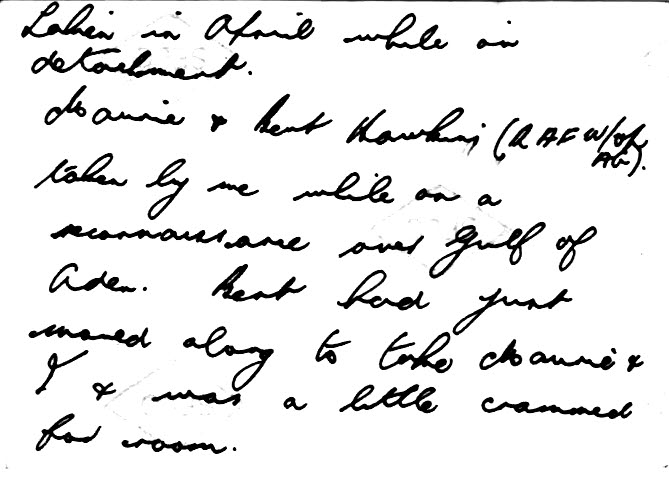 Taken in April while on
detachment.
Maurie & Bert Hawkins (RAF W/Op
AG).
taken by me while on a
reconnaissance over Gulf of
Aden. Bert had just
moved along to take Maurie &
I & was a little crammed
for room.